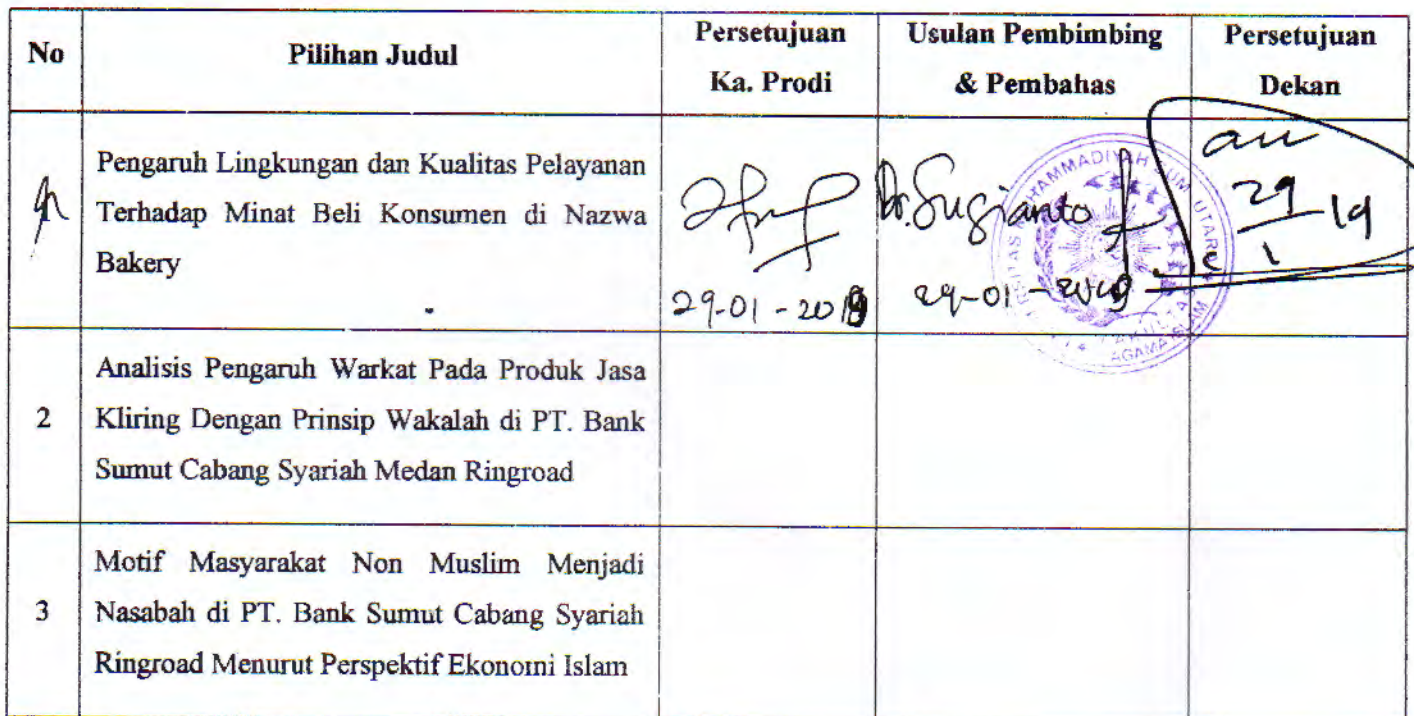 No
Pilihan Judul
Persetujuan
Ka. Prodi
Usulan Pembimbing
& Pembahas
Persetujuan
Dekan
Pengaruh Lingkungan dan Kualitas Pelayanan
Terhadap Minat Beli Konsumen di Nazwa
Bakery
29-01-2019
Dr. Sugianto
29-01-2019
acc
29
1
19
MUHAMMADIYAH SUM UTARA
AGAMA ISLAM
2
Analisis Pengaruh Warkat Pada Produk Jasa
Kliring Dengan Prinsip Wakalah di PT. Bank
Sumut Cabang Syariah Medan Ringroad
3
Motif Masyarakat Non Muslim Menjadi
Nasabah di PT. Bank Sumut Cabang Syariah
Ringroad Menurut Perspektif Ekonomi Islam